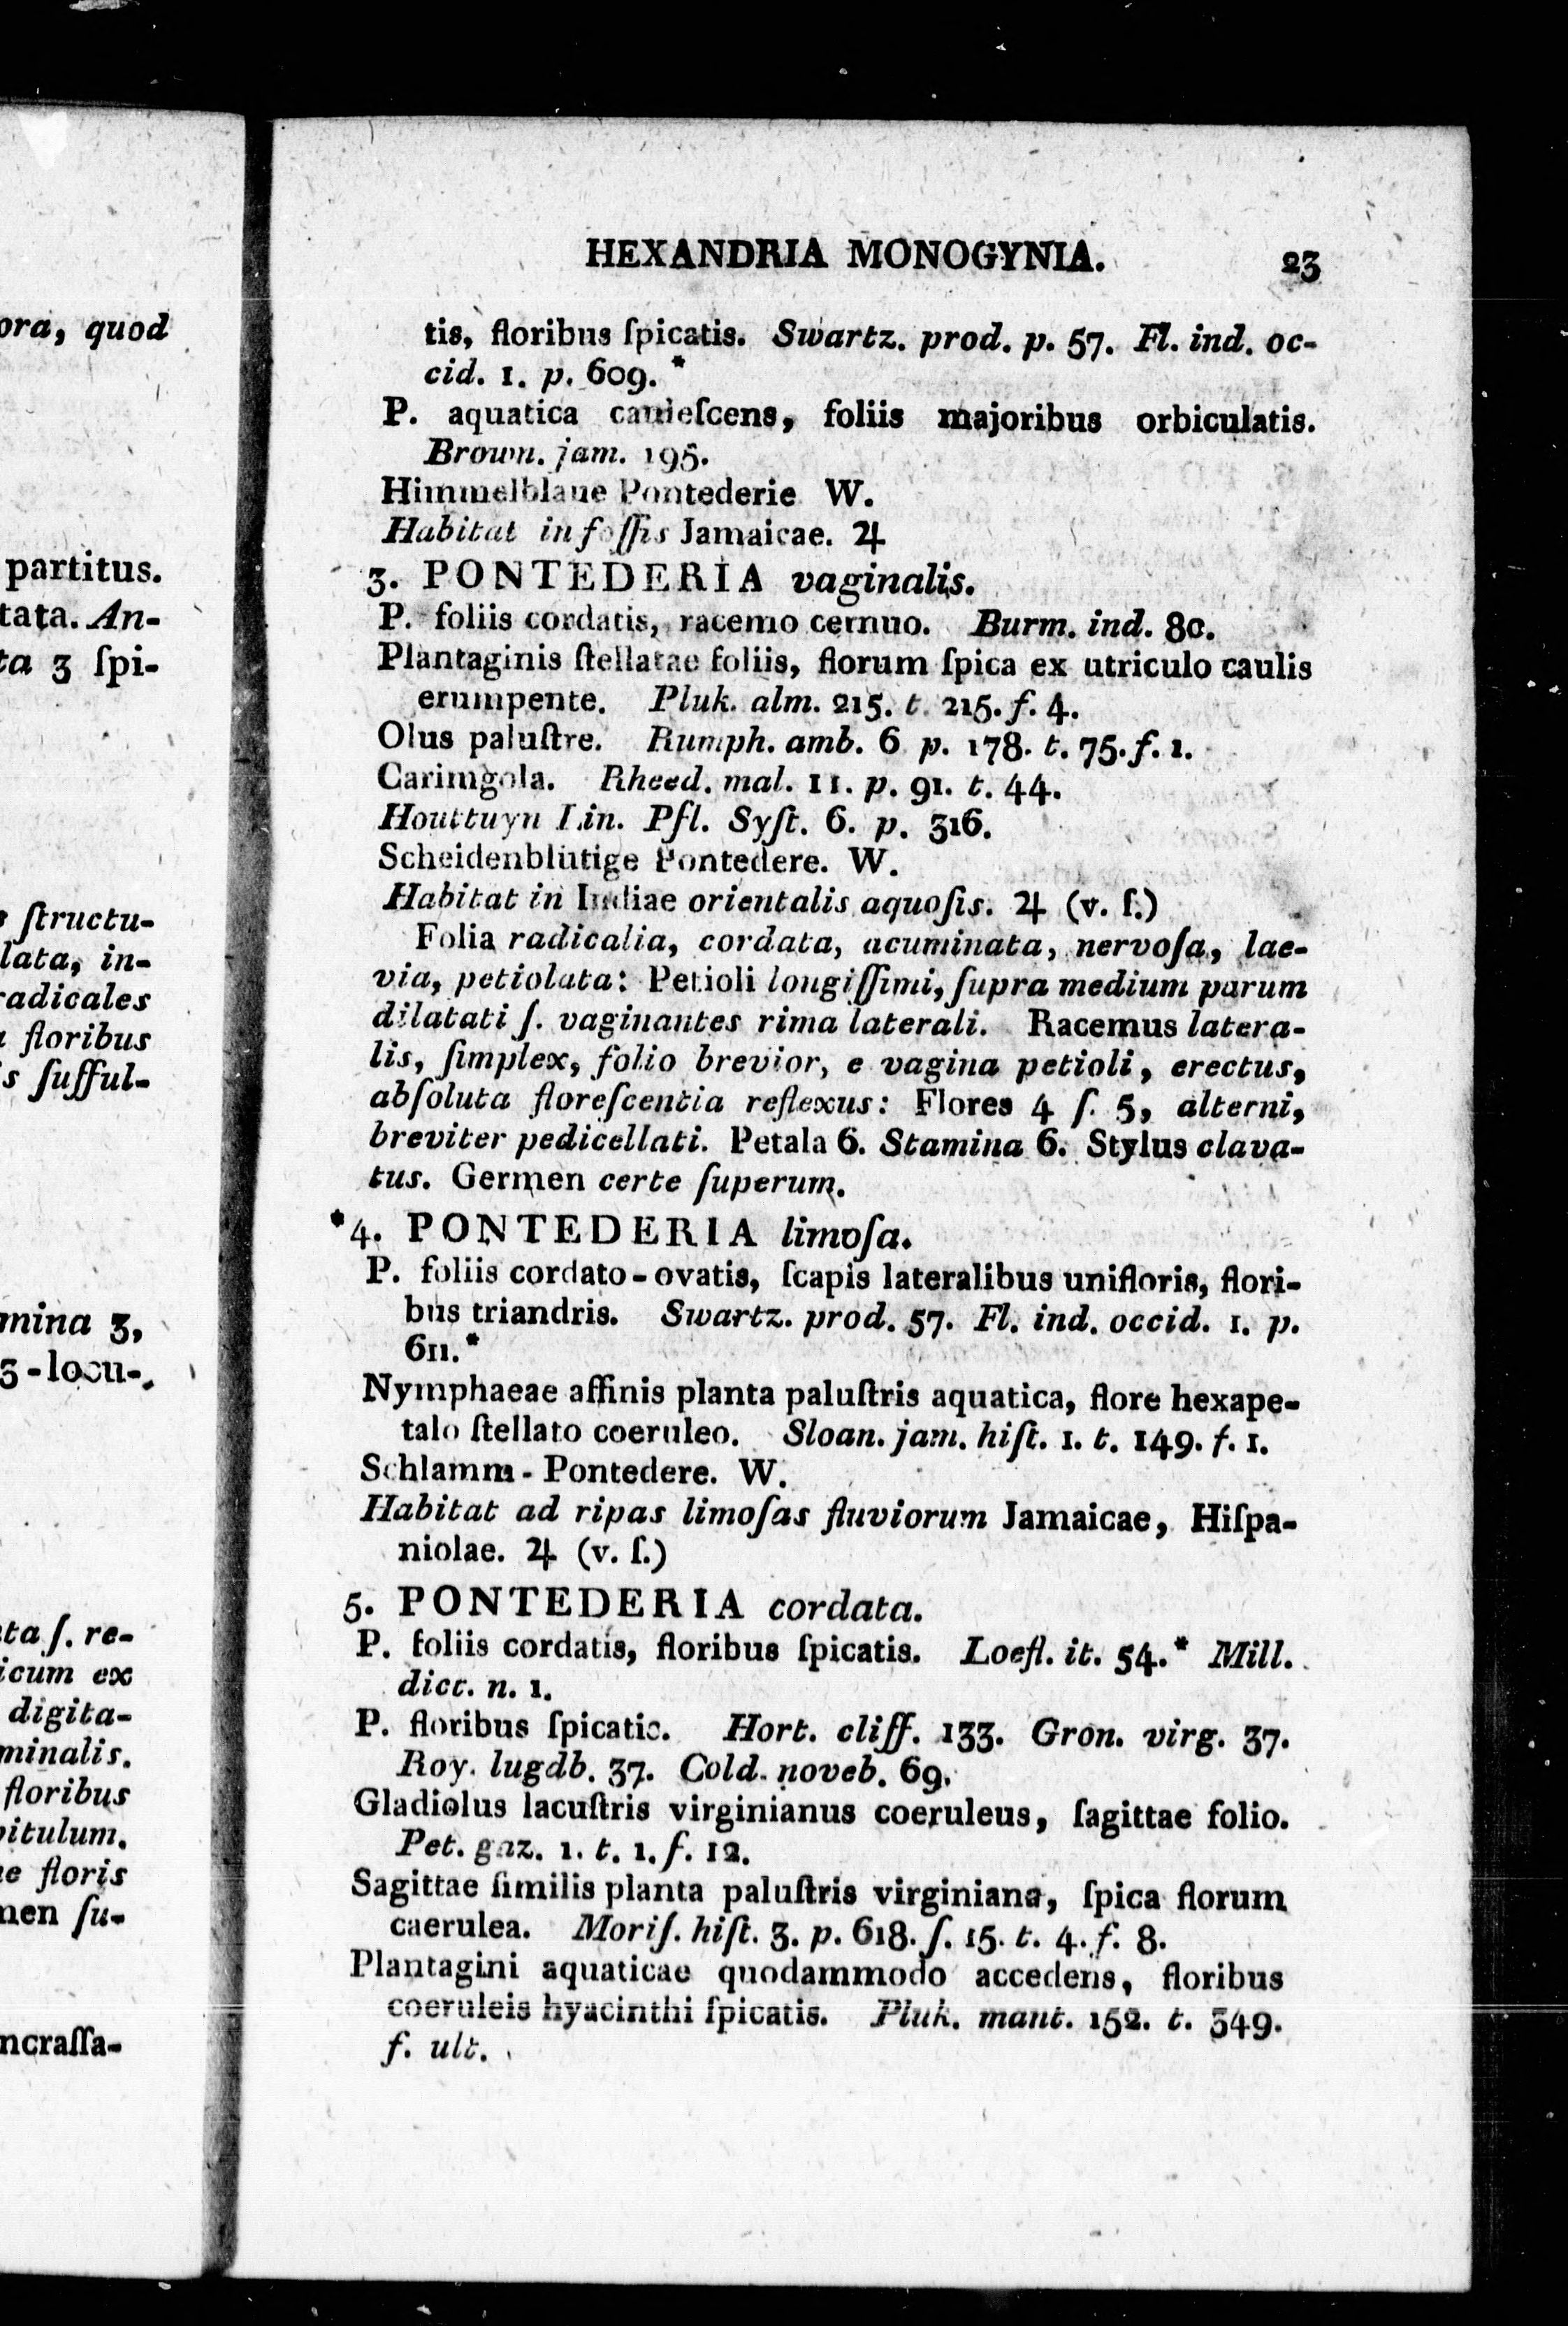 ora, quod
partitus.
tata. An-
ta 3 ſpi-
ſtructu-
lata, in-
radicales
floribus
s ſufful-
mina 3,
3-locu-
ta ſ. re-
icum ex
digita-
minalis.
floribus
pitulum.
ae floris
men ſu-
ncraſſa-
HEXANDRIA MONOGYNIA. 23
tis, floribus ſpicatis. Swartz. prod. p. 57. Fl. ind. oc-
cid. 1. p. 609. *
P. aquatica cauleſcens, foliis majoribus orbiculatis.
Brown. jam. 195.
Himmelblaue Pontederie W.
Habitat in foſſis Jamaicae. ♃
3. PONTEDERIA vaginalis.
P. foliis cordatis, racemo cernuo. Burm. ind. 80.
Plantaginis ſtellatae foliis, florum ſpica ex utriculo caulis
erumpente. Pluk. alm. 215. t. 215. f. 4.
Olus paluſtre. Rumph. amb. 6 p. 178. t. 75. f. 1.
Carimgola. Rheed. mal. 11. p. 91. t. 44.
Houttuyn Lin. Pfl. Syſt. 6. p. 316.
Scheidenblütige Pontedere. W.
Habitat in Indiae orientalis aquoſis. ♃ (v. ſ.)
Folia radicalia, cordata, acuminata, nervoſa, lae-
via, petiolata: Petioli longiſſimi, ſupra medium parum
dilatati ſ. vaginantes rima laterali. Racemus latera-
lis, ſimplex, folio brevior, e vagina petioli, erectus,
abſoluta floreſcentia reflexus: Flores 4 ſ. 5, alterni,
breviter pedicellati. Petala 6. Stamina 6. Stylus clava-
tus. Germen certe ſuperum.
*4. PONTEDERIA limoſa.
P. foliis cordato-ovatis, ſcapis lateralibus unifloris, flori-
bus triandris. Swartz. prod. 57. Fl. ind. occid. 1. p.
611.*
Nymphaeae affinis planta paluſtris aquatica, flore hexape-
talo ſtellato coeruleo. Sloan. jam. hiſt. 1. t. 149. f. 1.
Schlamm-Pontedere. W.
Habitat ad ripas limoſas fluviorum Jamaicae, Hiſpa-
niolae. ♃ (v. ſ.)
5. PONTEDERIA cordata.
P. foliis cordatis, floribus ſpicatis. Loefl. it. 54.* Mill.
dict. n. 1.
P. floribus ſpicatis. Hort. cliff. 133. Gron. virg. 37.
Roy. lugdb. 37. Cold. noveb. 69.
Gladiolus lacuſtris virginianus coeruleus, ſagittae folio.
Pet. gaz. 1. t. 1. f. 12.
Sagittae ſimilis planta paluſtris virginiana, ſpica florum
caerulea. Moriſ. hiſt. 3. p. 618. ſ. 15. t. 4. f. 8.
Plantagini aquaticae quodammodo accedens, floribus
coeruleis hyacinthi ſpicatis. Pluk. mant. 152. t. 349.
f. ult.